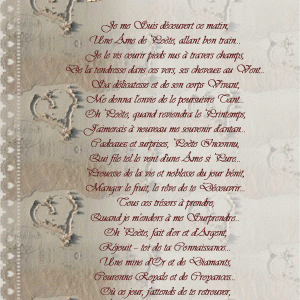 Je me Suis découvert ce matin,
Une Âme de Poète, allant bon train..
Je le vis courir pieds nus à travers champs,
De la tendresse dans ces vers, ses cheveux au Vent..
Sa délicatesse et de son corps Vivant,
Me donna l'envie de le poursuivre Tant..
Oh Poète, quand reviendra le Printemps,
J'aimerais à nouveau me souvenir d'antan..
Cadeaux et surprises, Poète Inconnu,
Qui file tel le vent d'une Âme si Pure..
Prouesse de la vie et noblesse du jour bénit,
Manger le fruit, le rêve de te Découvrir..
Tous ces trésors à prendre,
Quand je m'endors à me Surprendre..
Oh Poète, fait d'or et d'Argent,
Réjouit - toi de ta Connaissance..
Une mine d'Or et de Diamants,
Couronne Royale et de Croyances..
Où ce jour, j'attends de te retrouver,